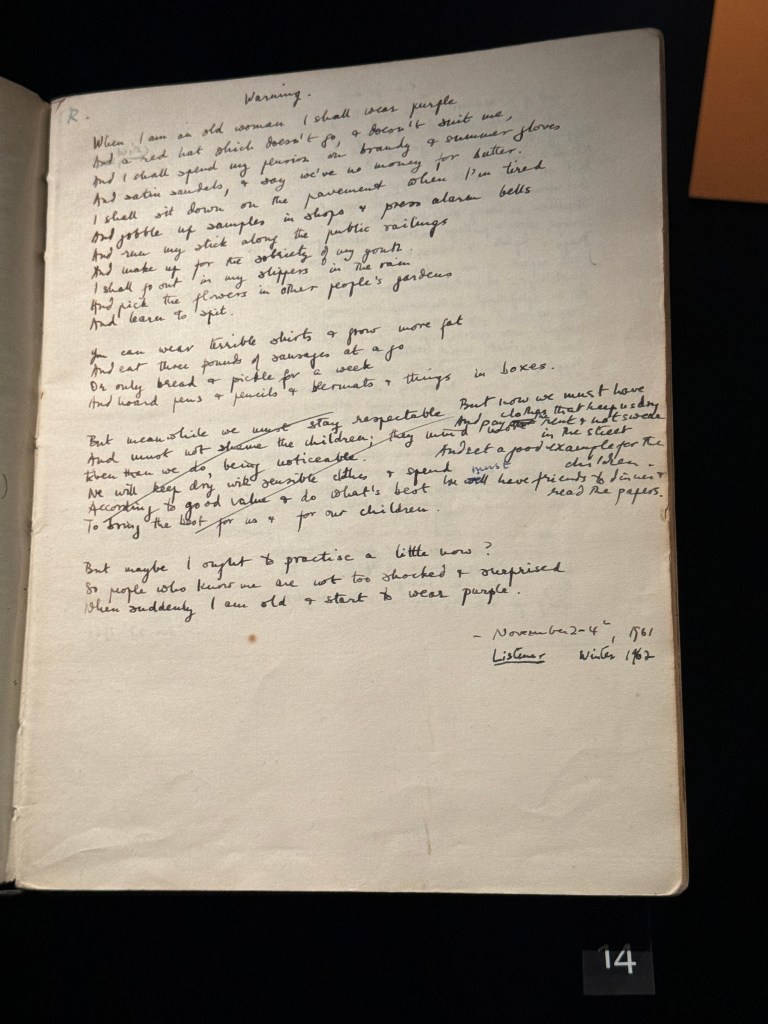 R.
Warning.
When I am an old woman I shall wear purple
And a red hat which doesn't go, & doesn't suit me,
And I shall spend my pension on brandy & summer gloves
And satin sandals, & say we've no money for butter.
I shall sit down on the pavement when I'm tired
And gobble up samples in shops & press alarm bells
And run my stick along the public railings
And make up for the sobriety of my youth.
I shall go out in my slippers in the rain
And pick the flowers in other people's gardens
And learn to spit.
You can wear terrible shirts & grow more fat
And eat three pounds of sausages at a go
Or only bread & pickle for a week
And hoard pens & pencils & beermats & things in boxes.
But meanwhile we must stay respectable
And must not shame the children; they mind
Even than we do, being noticeable.
We will keep dry with sensible clothes & spend
According to good value & do what's best
To bring the best for us & for our children.
But now we must have
And clothes that keep us dry
pay rent & not swear
in the street
And set a good example for the
children.
We must have friends to dinner &
read the papers.
But maybe I ought to practise a little now?
So people who know me are not too shocked & surprised
When suddenly I am old & start to wear purple.
- November 2-4, 1961
Listener Winter 1962
14